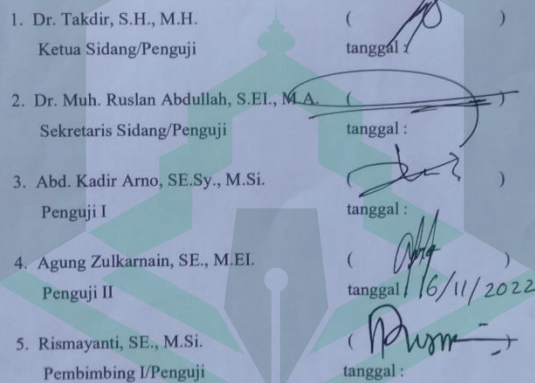 1. Dr. Takdir, S.H., M.H. ( )
Ketua Sidang/Penguji tanggal :
2. Dr. Muh. Ruslan Abdullah, S.EI., M.A. ( )
Sekretaris Sidang/Penguji tanggal :
3. Abd. Kadir Arno, SE.Sy., M.Si. ( )
Penguji I tanggal :
4. Agung Zulkarnain, SE., M.EI. ( )
Penguji II tanggal : 16/11/2022
5. Rismayanti, SE., M.Si. ( )
Pembimbing I/Penguji tanggal :